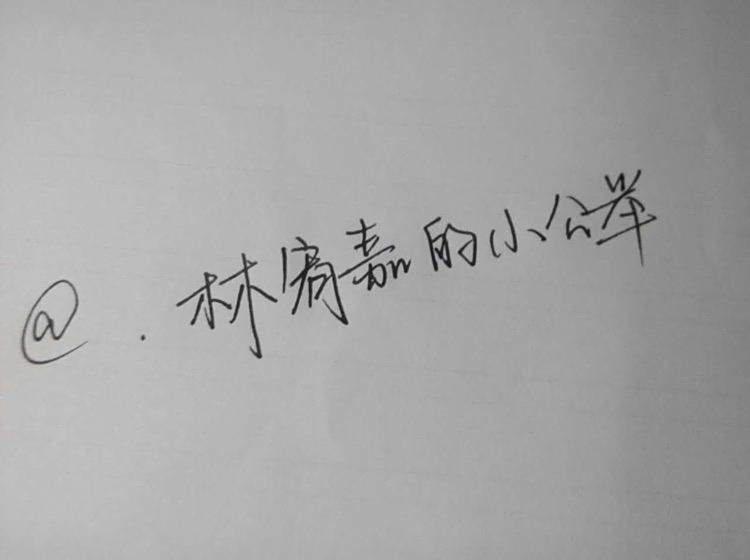 @.林宥嘉的小公举